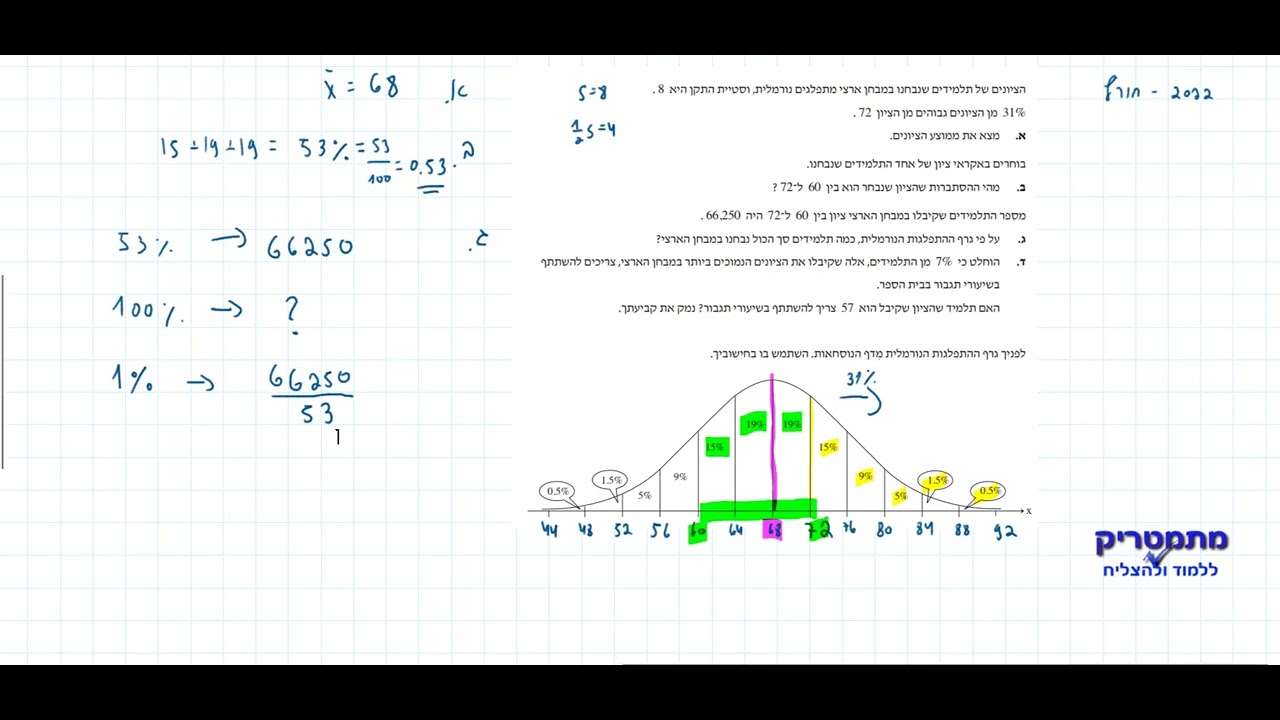 חורף - 2022
הציונים של תלמידים שנבחנו במבחן ארצי מתפלגים נורמלית, וסטיית התקן היא 8 .
31% מן הציונים גבוהים מן הציון 72 .
א. מצא את ממוצע הציונים.
בוחרים באקראי ציון של אחד התלמידים שנבחנו.
ב. מהי ההסתברות שהציון שנבחר הוא בין 60 ל־72 ?
מספר התלמידים שקיבלו במבחן הארצי ציון בין 60 ל־72 היה 66,250 .
ג. על פי גרף ההתפלגות הנורמלית, כמה תלמידים סך הכול נבחנו במבחן הארצי?
ד. הוחלט כי 7% מן התלמידים, אלה שקיבלו את הציונים הנמוכים ביותר במבחן הארצי, צריכים להשתתף
בשיעורי תגבור בבית הספר.
האם תלמיד שהציון שקיבל הוא 57 צריך להשתתף בשיעורי תגבור? נמק את קביעתך.
לפניך גרף ההתפלגות הנורמלית מדף הנוסחאות. השתמש בו בחישוביך.
S=8
1/2 S=4
31%
0.5% 1.5% 5% 9% 15% 19% 19% 15% 9% 5% 1.5% 0.5%
x
44 48 52 56 60 64 68 72 76 80 84 88 92
א. x̄ = 68
ב. 15 + 19 + 19 = 53% = 53/100 = 0.53
ג. 53% → 66250
100% → ?
1% → 66250/53
מתמטריק
ללמוד ולהצליח